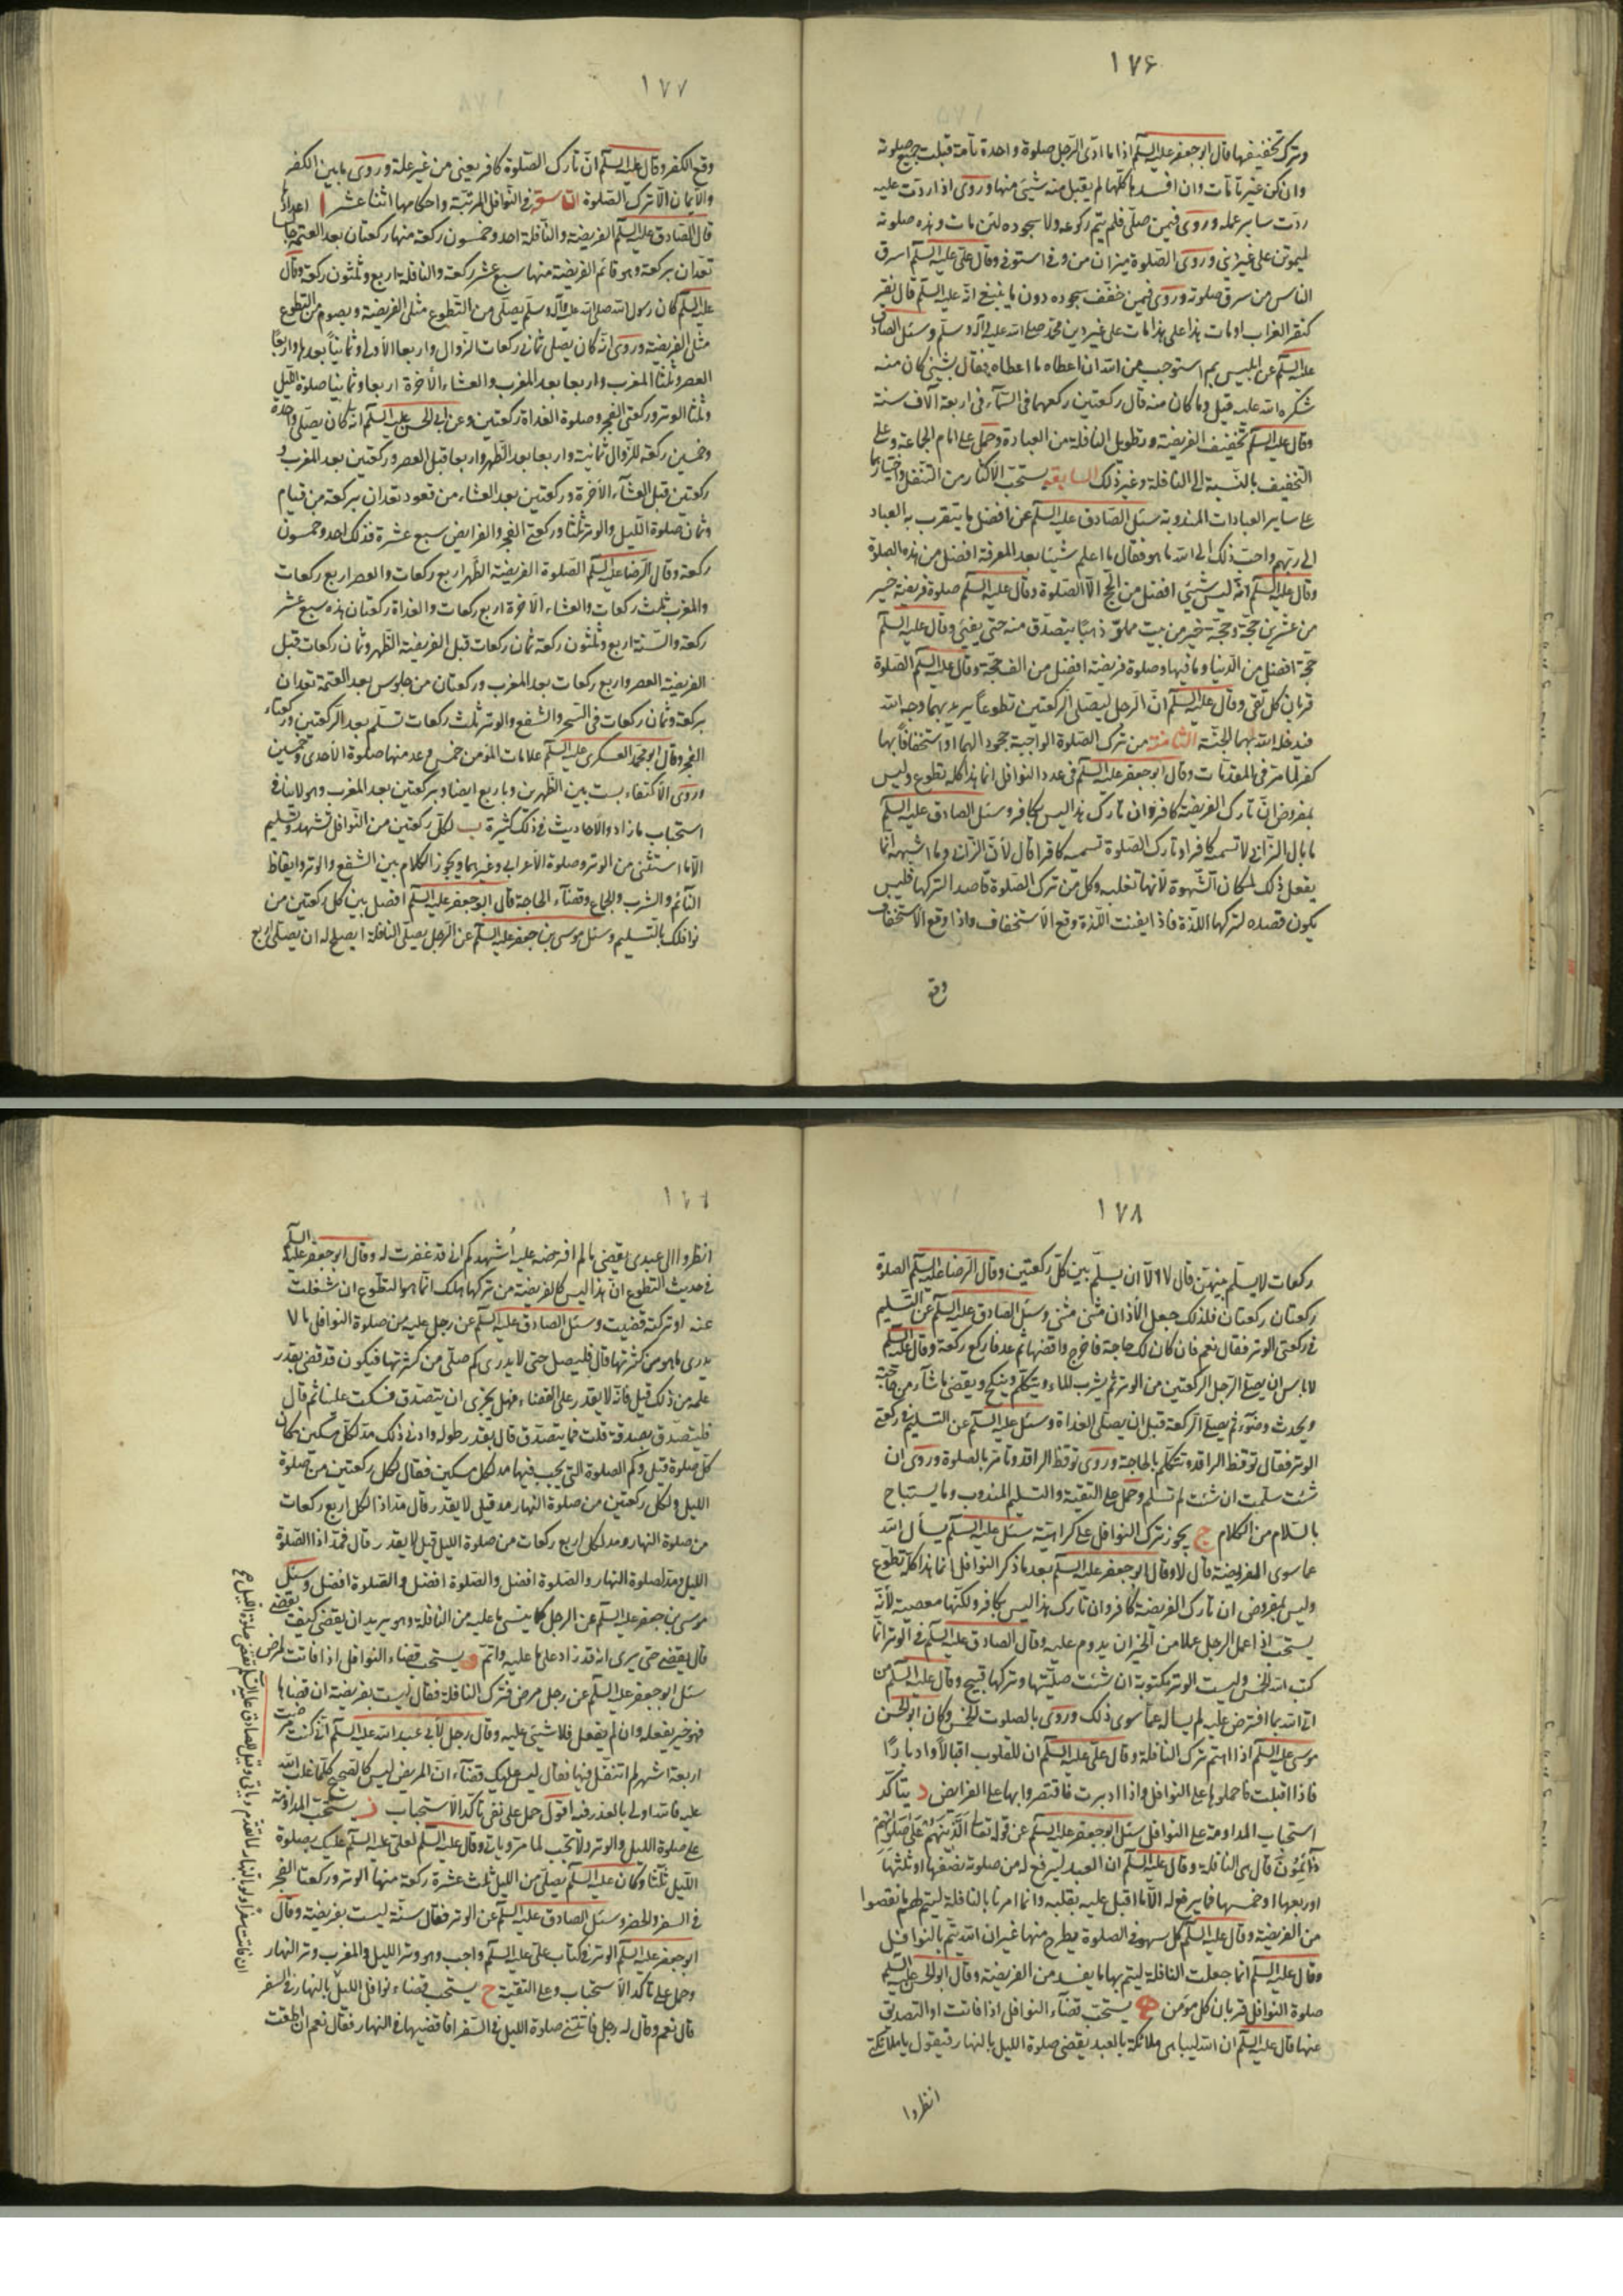 ١٧۶
وترك تخفيفها قال ابو جعفر عليه السلم اذا ما ادّى الرّجل صلوة واحدة تامة قبلت جميع صلوته
وان كن غير تامّات وان افسدها كلّها لم يقبل منه شيئ منها وروى اذا ردّت عليه
ردّت ساير عمله وروى فيمن صلّى فلم يتم ركوعه ولا سجوده لئن مات وهذه صلوته
ليموتن على غير ديني وروى الصّلوة ميزان من وفى استوفى وقال علي عليه السلم اسرق
الناس من سرق صلوته وروى فيمن خفّف سجوده دون ما ينبغي انّه عليه السلم قال نقر
كنقر الغراب لو مات هذا على هذا مات على غير دين محمّد صلى الله عليه وآله وسلّم وسئل الصادق
عليه السلم عن ابليس بم استوجب من الله ان اعطاه ما اعطاه فقال بشيئ كان منه
شكره الله عليه قيل وما كان منه قال ركعتين ركعهما في السّمآء في اربعة آلاف سنة
وقال عليه السلم تخفيف الفريضة وتطويل النافلة من العبادة وحمل على امام الجماعة وعلى
التخفيف بالنّسبة الى النافلة وغير ذلك السابعة يستحبّ الاكثار من التنفّل واختيارها
على ساير العبادات المندوبة سئل الصّادق عليه السلم عن افضل ما يتقرب به العباد
الى ربّهم واحبّ ذلك الى الله ما هو فقال ما اعلم شيئا بعد المعرفة افضل من هذه الصلوة
وقال عليه السلم انّه ليس شيئ افضل من الحجّ الاّ الصّلوة وقال عليه السلم صلوة فريضة خير
من عشرين حجّة وحجّة خير من بيت مملوّ ذهبًا يتصدّق منه حتى يفنى وقال عليه السلم
حجّة افضل من الدّنيا وما فيها وصلوة فريضة افضل من الف حجّة وقال عليه السلم الصّلوة
قربان كلّ تقي وقال عليه السلم انّ الرّجل ليصلّي الركعتين تطوعاً يريد بهما وجه الله
فيدخله الله بهما الجنّة الثامنة من ترك الصّلوة الواجبة جحودا لها او استخفافاً بها
كفر لما مرّ في المقدّمات وقال ابو جعفر عليه السلم في عدد النوافل انما هذا كله تطوع وليس
بمفروض انّ تارك الفريضة كافر وان تارك هذا ليس بكافر وسئل الصادق عليه السلم
ما بال الزّاني لا تسميه كافرا وتارك الصّلوة تسميه كافرا قال لأنّ الزّاني وما اشبهه انّما
يفعل ذلك لمكان الشّهوة لأنها تغلبه وكل من ترك الصّلوة قاصدا لتركها فليس
يكون قصده لتركها اللذّة فاذا نفيت اللّذة وقع الاستخفاف واذا وقع الاستخفاف
وقع
١٧٧
وقع الكفر وقال عليه السلم انّ تارك الصّلوة كافر يعني من غير علة وروى ما بين الكفر
والايمان الاّ ترك الصّلوة التاسعة في النّوافل المرتّبة واحكامها اثنا عشر ا اعدادها
قال الصّادق عليه السلم الفريضة والنّافلة احد وخمسون ركعة منها ركعتان بعد العتمة جالسا
تعدّان بركعة وهو قائم الفريضة منها سبع عشر ركعة والنافلة اربع وثلثون ركعة وقال
عليه السلم كان رسول الله صلى الله عليه وآله وسلّم يصلّي من التطوع مثلي الفريضة ويصوم من التطوع
مثلي الفريضة وروى انّه كان يصلي ثماني ركعات الزوال واربعا الأولى وثمانيًا بعدها واربعًا
العصر وثلثا المغرب واربعا بعد المغرب والعشاء الأخرة اربعا وثمانيا صلوة اللّيل
وثلثا الوتر وركعتي الفجر وصلوة الغداة ركعتين وعن ابي الحسن عليه السلم انّه كان يصلّي واحدة
وخمسين ركعة للزّوال ثمانية واربعا بعد الظّهر واربعا قبل العصر وركعتين بعد المغرب و
ركعتين قبل العشآء الأخرة وركعتين بعد العشاء من قعود تعدان بركعة من قيام
وثمان صلوة اللّيل والوتر ثلثا وركعتي الفجر والفرايض سبع عشرة فذلك احد وخمسون
ركعة وقال الرّضا عليه السلم الصّلوة الفريضة الظّهر اربع ركعات والعصر اربع ركعات
والمغرب ثلث ركعات والعشاء الآخرة اربع ركعات والغداة ركعتان هذه سبع عشر
ركعة والسّنة اربع وثلثون ركعة ثمان ركعات قبل الفريضة الظّهر وثمان ركعات قبل
الفريضة العصر واربع ركعات بعد المغرب وركعتان من جلوس بعد العتمة تعدان
بركعة وثمان ركعات في السّحر والشفع والوتر ثلث ركعات تسلّم بعد الرّكعتين وركعتا
الفجر وقال ابو محمد العسكري عليه السلم علامات المؤمن خمس وعد منها صلوة الأحدى وخمسين
وروى الاكتفاء بست بين الظّهرين وباربع ايضا وبركعتين بعد المغرب وهو لا ينافي
استحباب ما زاد والأحاديث في ذلك كثيرة ب لكل ركعتين من النّوافل تشهد وتسليم
الاّ ما استثني من الوتر وصلوة الأعرابي وغيرهما ويجوز الكلام بين الشفع والوتر وايقاظ
النّائم والشرب والجماع وقضآء الحاجة قال ابو جعفر عليه السلم افصل بين كل ركعتين من
نوافلك بالتّسليم وسئل موسى بن جعفر عليه السلم عن الرّجل يصلّي النافلة ايصلح له ان يصلّي اربع
١٧٨
ركعات لا يسلّم بينهنّ قال لا الاّ ان يسلّم بين كلّ ركعتين وقال الرّضا عليه السلم الصلوة
ركعتان ركعتان فلذلك جعل الأذان مثنى مثنى وسئل الصادق عليه السلم عن التّسليم
في ركعتي الوتر فقال نعم فان كان لك حاجة فاخرج واقضها ثم عد فاركع ركعة وقال عليه السلم
لا باس ان يصلّي الرّجل الركعتين من الوتر ثم يشرب الماء ويتكلّم وينكح ويقضي ما شآء من حاجته
ويحدث وضوء ثم يصلّي الرّكعة قبل ان يصلّي الغداة وسئل عليه السلم عن التسليم في ركعتي
الوتر فقال توقظ الراقد وتتكلّم بالحاجة وروى توقظ الراقد وتامر بالصلوة وروى ان
شئت سلّمت ان شئت لم تسلم وحمل على التقية والتسليم المندوب وما يستباح
بالسّلام من الكلام ج يجوز ترك النوافل على كراهيّة سئل عليه السلم يسأل الله
عما سوى الفريضة قال لا وقال ابو جعفر عليه السلم بعد ما ذكر النوافل انما هذا كله تطوّع
وليس بمفروض ان تارك الفريضة كافر وان تارك هذا ليس بكافر ولكنّها معصية لأنّه
يستحبّ اذا عمل الرجل عملا من الخير ان يدوم عليه وقال الصادق عليه السلم في الوتر انّما
كتب الله الخمس وليست الوتر مكتوبة ان شئت صلّيتها وتركها قبيح وقال عليه السلم من
اتى الله بما افترض عليه لم يسأله عمّا سوى ذلك وروى بالصلوت الخمس وكان ابو الحسن
موسى عليه السلم اذا اهتم ترك النافلة وقال علي عليه السلم ان للقلوب اقبالاً وادبارًا
فاذا اقبلت فاحملوها على النوافل واذا ادبرت فاقتصروا بها على الفرايض د يتاكّد
استحباب المداومة على النوافل سئل ابو جعفر عليه السلم عن قوله تعالى الَّذِينَ هُمْ عَلَى صَلَوتِهِمْ
دَآئِمُونَ قال هي النافلة وقال عليه السلم ان العبد ليرفع له من صلوته نصفها او ثلثها
او ربعها او خمسها فما يرفع له الاّ ما اقبل عليه بقلبه وانما امرنا بالنافلة ليتم لهم ما نقصوا
من الفريضة وقال عليه السلم كل سهو في الصلوة يطرح منها غير ان الله يتم بالنوافل
وقال عليه السلم انما جعلت النافلة ليتم بها ما يفسد من الفريضة وقال ابو الحسن عليه السلم
صلوة النوافل قربان كل مؤمن ه يستحبّ قضآء النوافل اذا فاتت او التصدّق
عنها قال عليه السلم ان الله ليباهي ملائكته بالعبد يقضي صلوة الليل بالنهار فيقول يا ملائكتي
انظروا
انظروا الى عبدي يقضي ما لم افرضه عليه اُشهدكم اني قد غفرت له وقال ابو جعفر عليه السلم
في حديث التطوع انّ هذا ليس كالفريضة من تركها هلك انّما هو التطوع ان شغلت
عنه او تركته قضيت وسئل الصادق عليه السلم عن رجل عليه من صلوة النوافل ما لا
يدرى ما هو من كثرتها قال فليصل حتى لا يدرى كم صلّى من كثرتها فيكون قد قضى بقدر
علمه من ذلك قيل فانّه لا يقدر على القضاء فهل يجزى ان يتصدّق فسكت مليّا ثم قال
فليتصدّق بصدقة قلت فما يتصدّق قال بقدر طوله وادنى ذلك مدّ لكلّ مسكين مكان
كلّ صلوة قيل وكم الصلوة التي يجب فيها مد لكل مسكين فقال لكل ركعتين من صلوة
الليل ولكل ركعتين من صلوة النهار مد قيل لا يقدر قال مدّ اذا لكل اربع ركعات
من صلوة النهار ومد لكل اربع ركعات من صلوة الليل قيل لا يقدر قال فمدّ اذا الصّلوة
الليل ومدّ لصلوة النهار والصّلوة افضل والصّلوة افضل والصّلوة افضل وسئل
موسى بن جعفر عليه السلم عن الرجل ينسى ما عليه من النافلة وهو يريد ان يقضي كيف يقضي
قال يقضي حتى يرى انه قد زاد على ما عليه واتمّ و يستحبّ قضاء النوافل اذا فاتت لمرض
سئل ابو جعفر عليه السلم عن رجل مرض فترك النافلة فقال ليست بفريضة ان قضاها
فهو خير يفعله وان لم يفعل فلا شيئ عليه وقال رجل لأبي عبد الله عليه السلم انّي كنت مرضت
اربعة اشهر لم اتنفّل فيها فقال ليس عليك قضآء انّ المريض ليس كالصّحيح كلّما غلب الله
عليه فالله اولى بالعذر فيه اقول حمل على نفي تاكّد الاستحباب ز يستحبّ المداومة
على صلوة الليل والوتر ولا تجب لما مرّ وياتي وقال عليه السلم لعلي عليه السلم عليك بصلوة
اللّيل ثلثا وكان عليه السلم يصلّي من الليل ثلث عشرة ركعة منها الوتر وركعتا الفجر
في السفر والحضر وسئل الصادق عليه السلم عن الوتر فقال سنّة ليست بفريضة وقال
ابو جعفر عليه السلم الوتر في كتاب علي عليه السلم واجب وهو وتر الليل والمغرب وتر النهار
وحمل على تاكد الاستحباب وعلى التقية ح يستحب قضاء نوافل الليل بالنهار في السفر
قال نعم وقال له رجل فاتتني صلوة الليل في السّفر افاقضيها في النهار فقال نعم ان اطقت